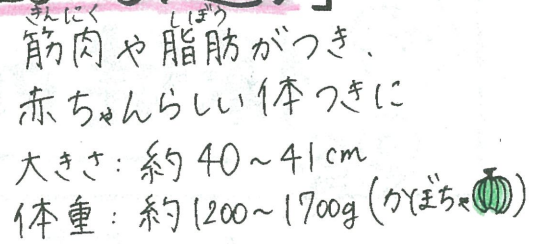 きんにく しぼう
筋肉や脂肪がつき、
赤ちゃんらしい体つきに
大きさ：約40〜41cm
体重：約1200〜1700g（かぼちゃ）